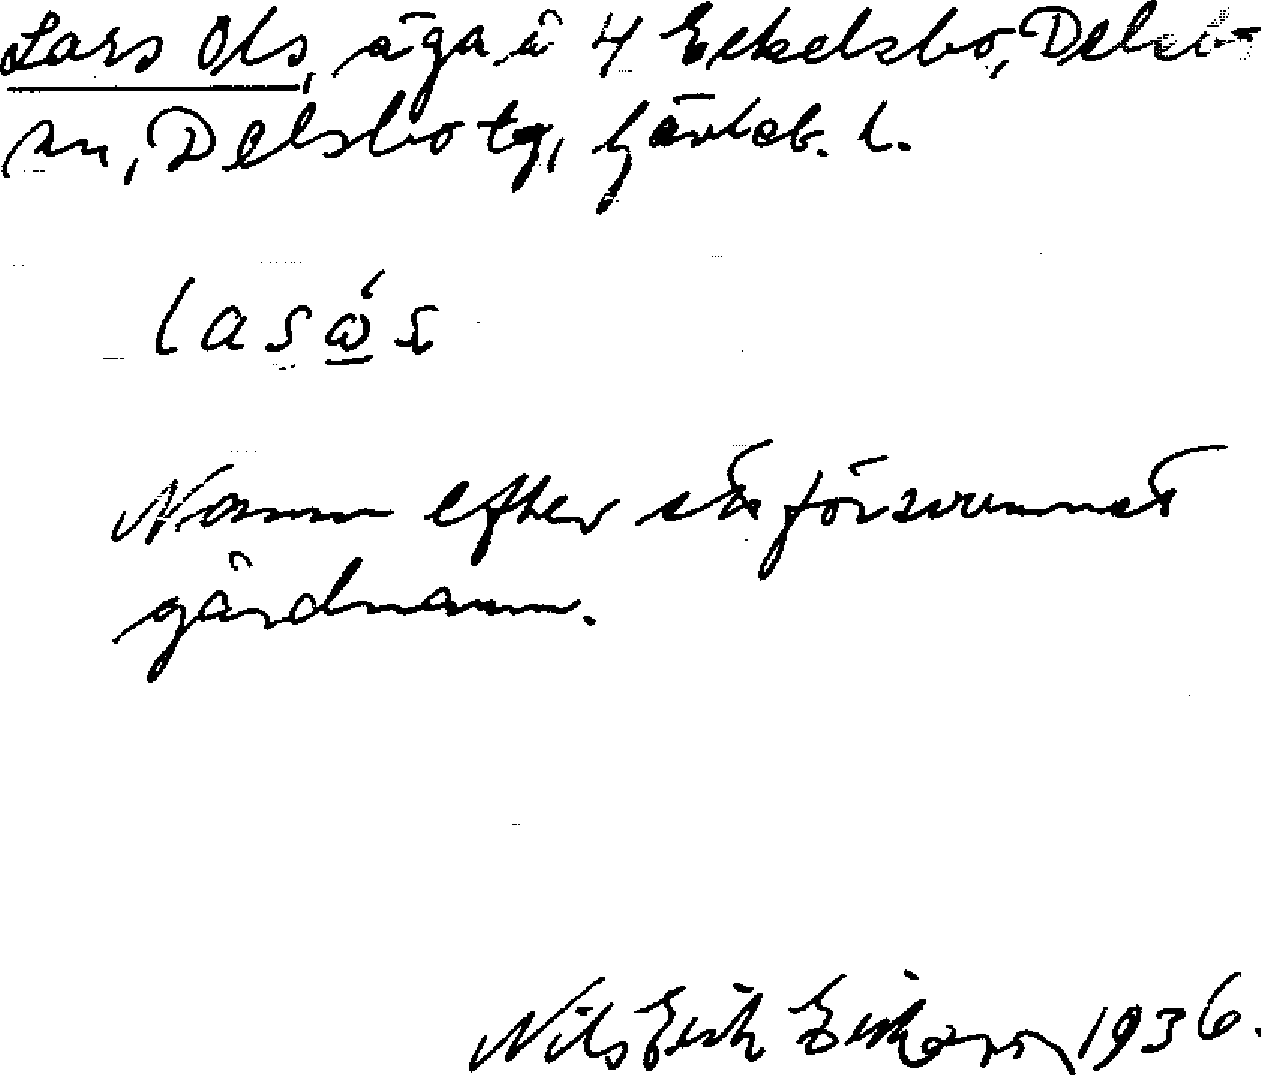 Lars Ols, äga å 4 Eckelsbo, Delsbo
sn, Delsbo tg, Gävleb. l.
lasώ̲s
Namn efter försvunnet
gårdnamn.
Nils Erik Eriksson 1936.